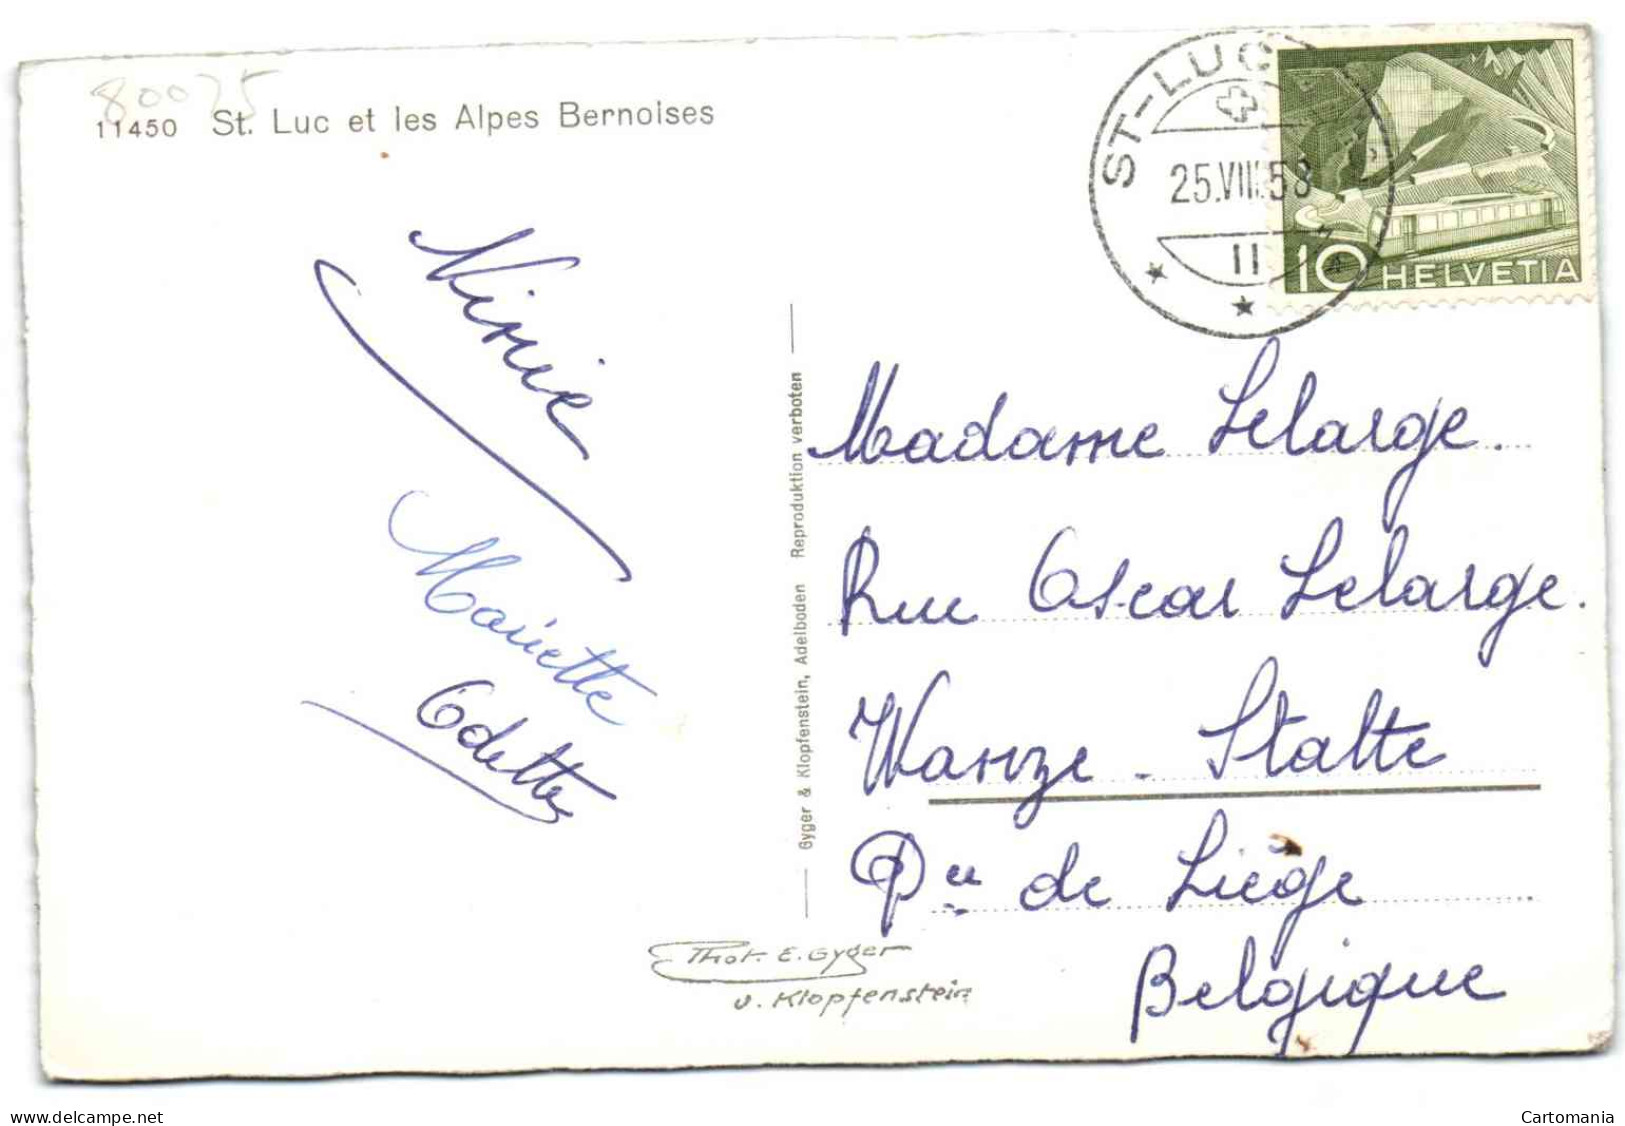 80075
11450 St. Luc et les Alpes Bernoises
ST-LUC
25.VIII.58
II
10 HELVETIA
Ninie
Mariette
Odette
Gyger & Klopfenstein, Adelboden Reproduktion verboten
Madame Lelarge.
Rue Oscar Lelarge.
Wanze - Statte
Pce de Liége
Belgique
Phot. E. Gyger
u. Klopfenstein
delcampe.net
Cartomania